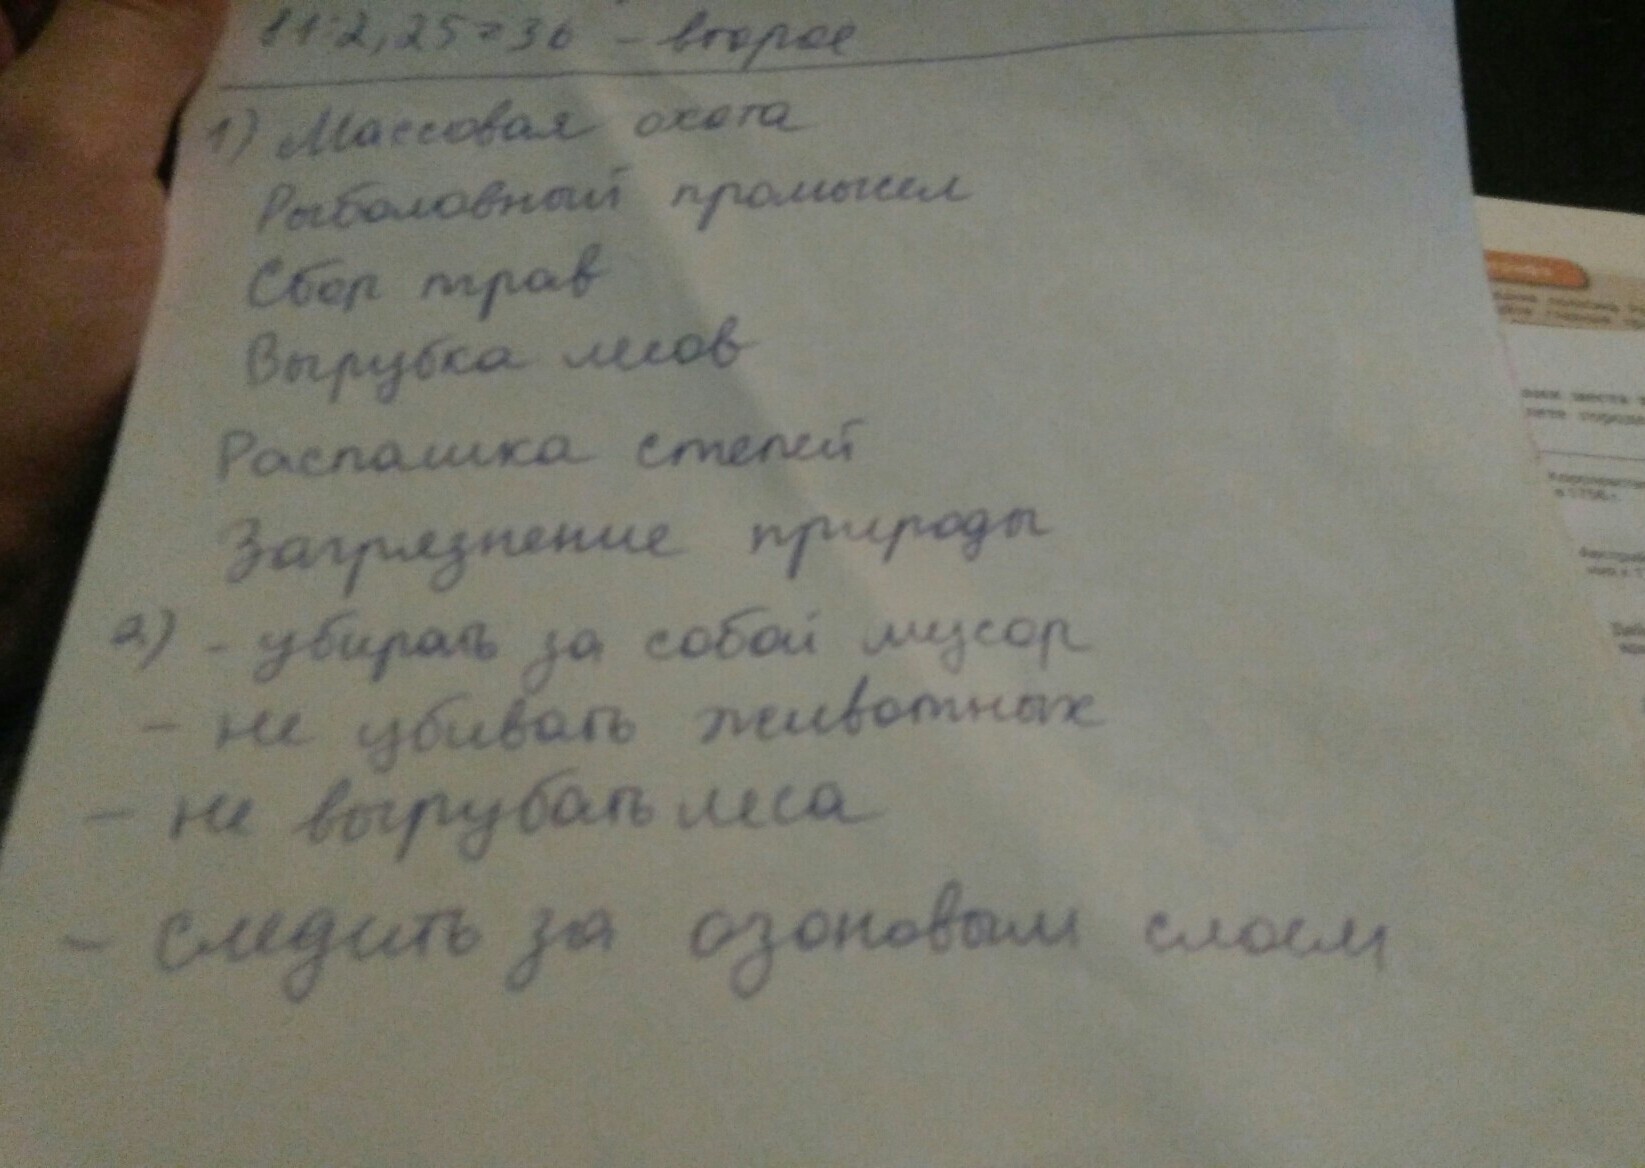 :2,25=36 - второе
1) Массовая охота
Рыболовный промысел
Сбор трав
Вырубка лесов
Распашка степей
Загрязнение природы
2) - убирать за собой мусор
- не убивать животных
- не вырубать леса
- следить за озоновым слоем